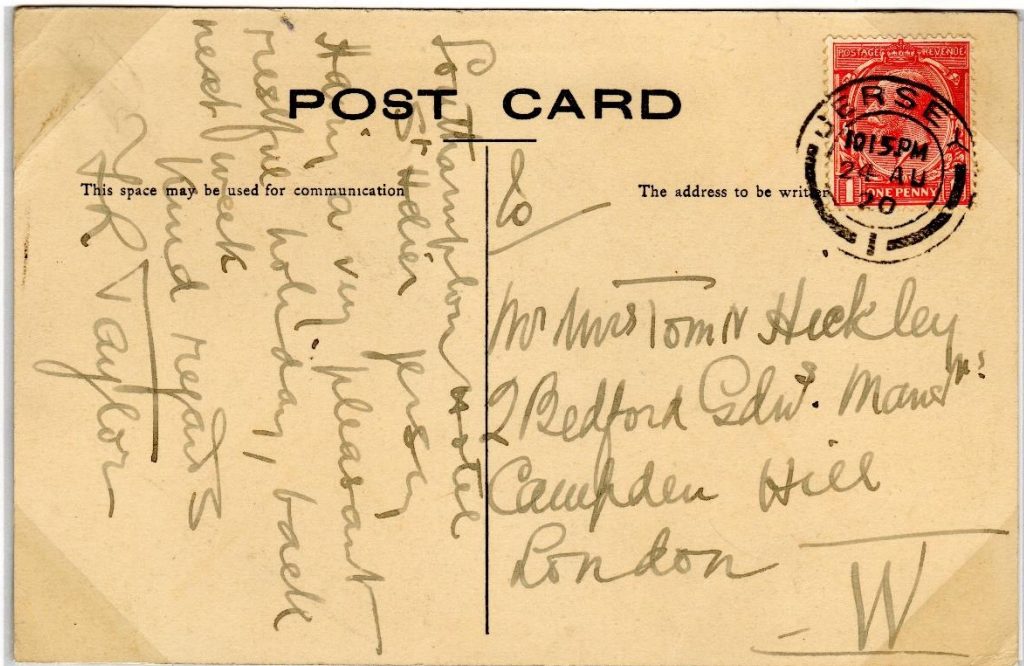 POST CARD
This space may be used for communication
The address to be written
POSTAGE REVENUE
ONE PENNY
JERSEY
10 15.PM
24 AU
20
1
Southampton Hotel
St Helier Jersey
Having a very pleasant
restful holiday, back
next week
Kind regards
Taylor
To
Mr Mrs Tom N Hickley
2 Bedford Gdns. Mansns
Campden Hill
London
W